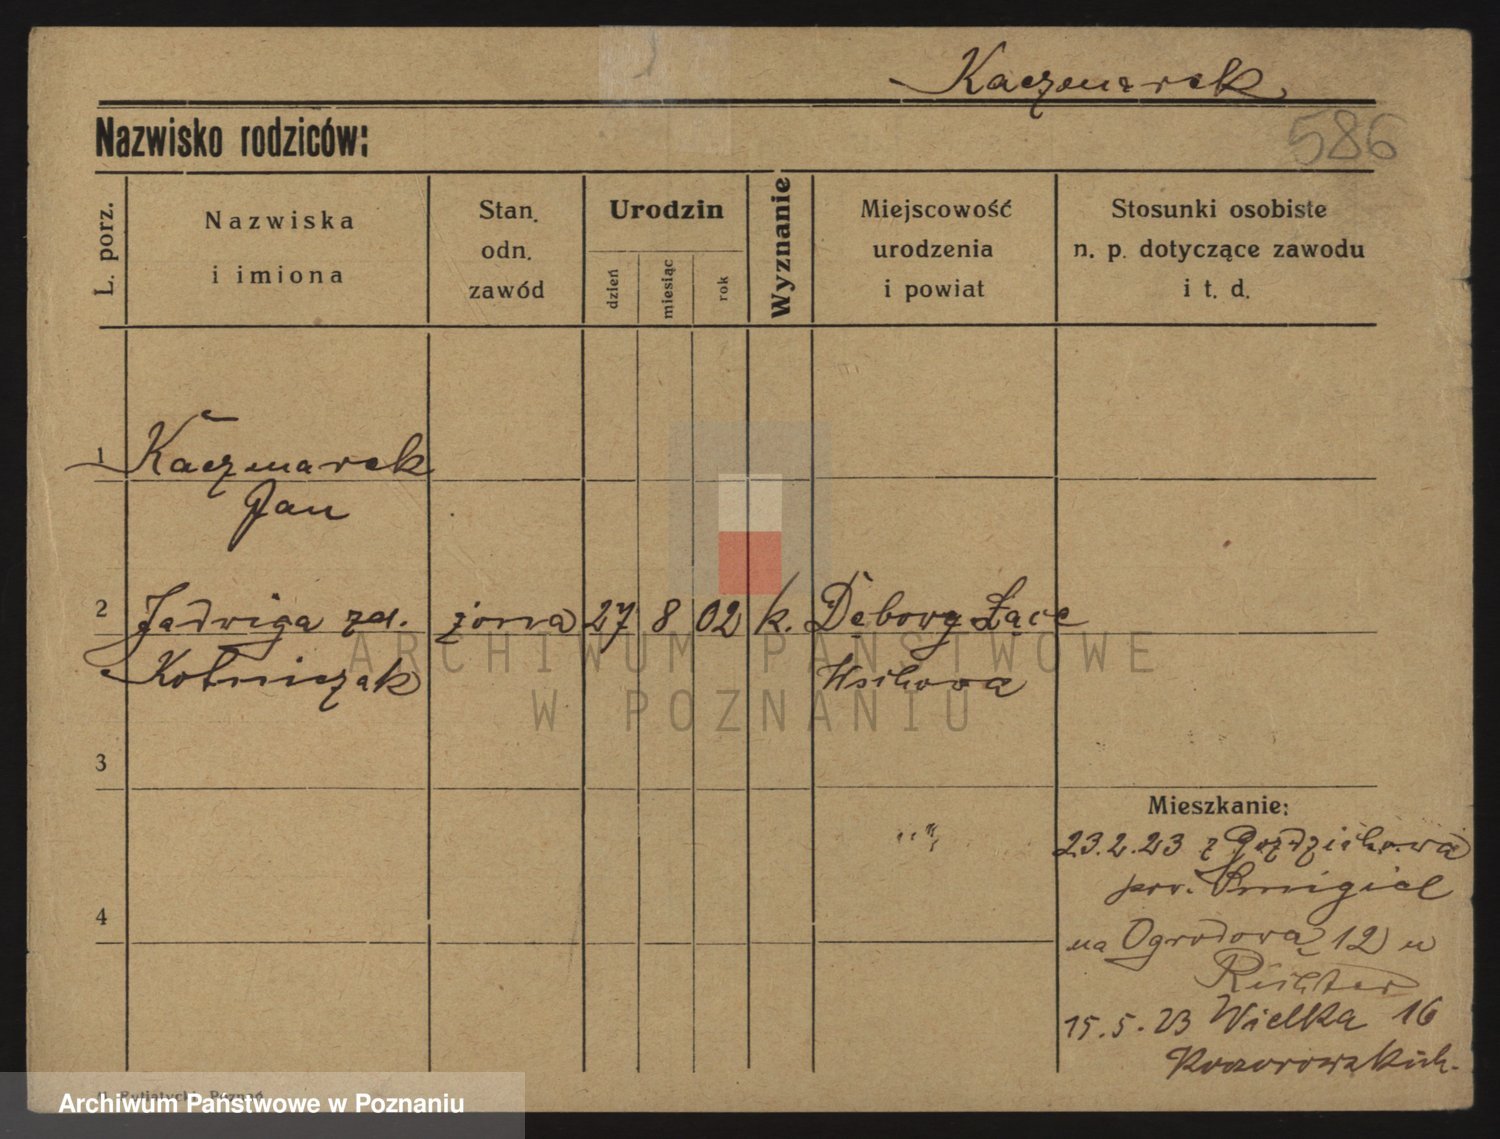 Kaczmarek
586
Nazwisko rodziców:
L. porz.
Nazwiska
i imiona
Stan.
odn.
zawód
Urodzin
dzień
miesiąc
rok
Wyznanie
Miejscowość
urodzenia
i powiat
Stosunki osobiste
n. p. dotyczące zawodu
i t. d.
1 Kaczmarek
Jan
2 Jadwiga zd. żona 27 8 02 k. Dębowy Łące
Kotniczak Wschowa
3
4
Mieszkanie:
23.2.23 z Goździchowa
pow. Śmigiel
na Ogrodową 12 u
Richter
15.5.23 Wielka 16
ARCHIWUM PAŃSTWOWE
W POZNANIU
Archiwum Państwowe w Poznaniu